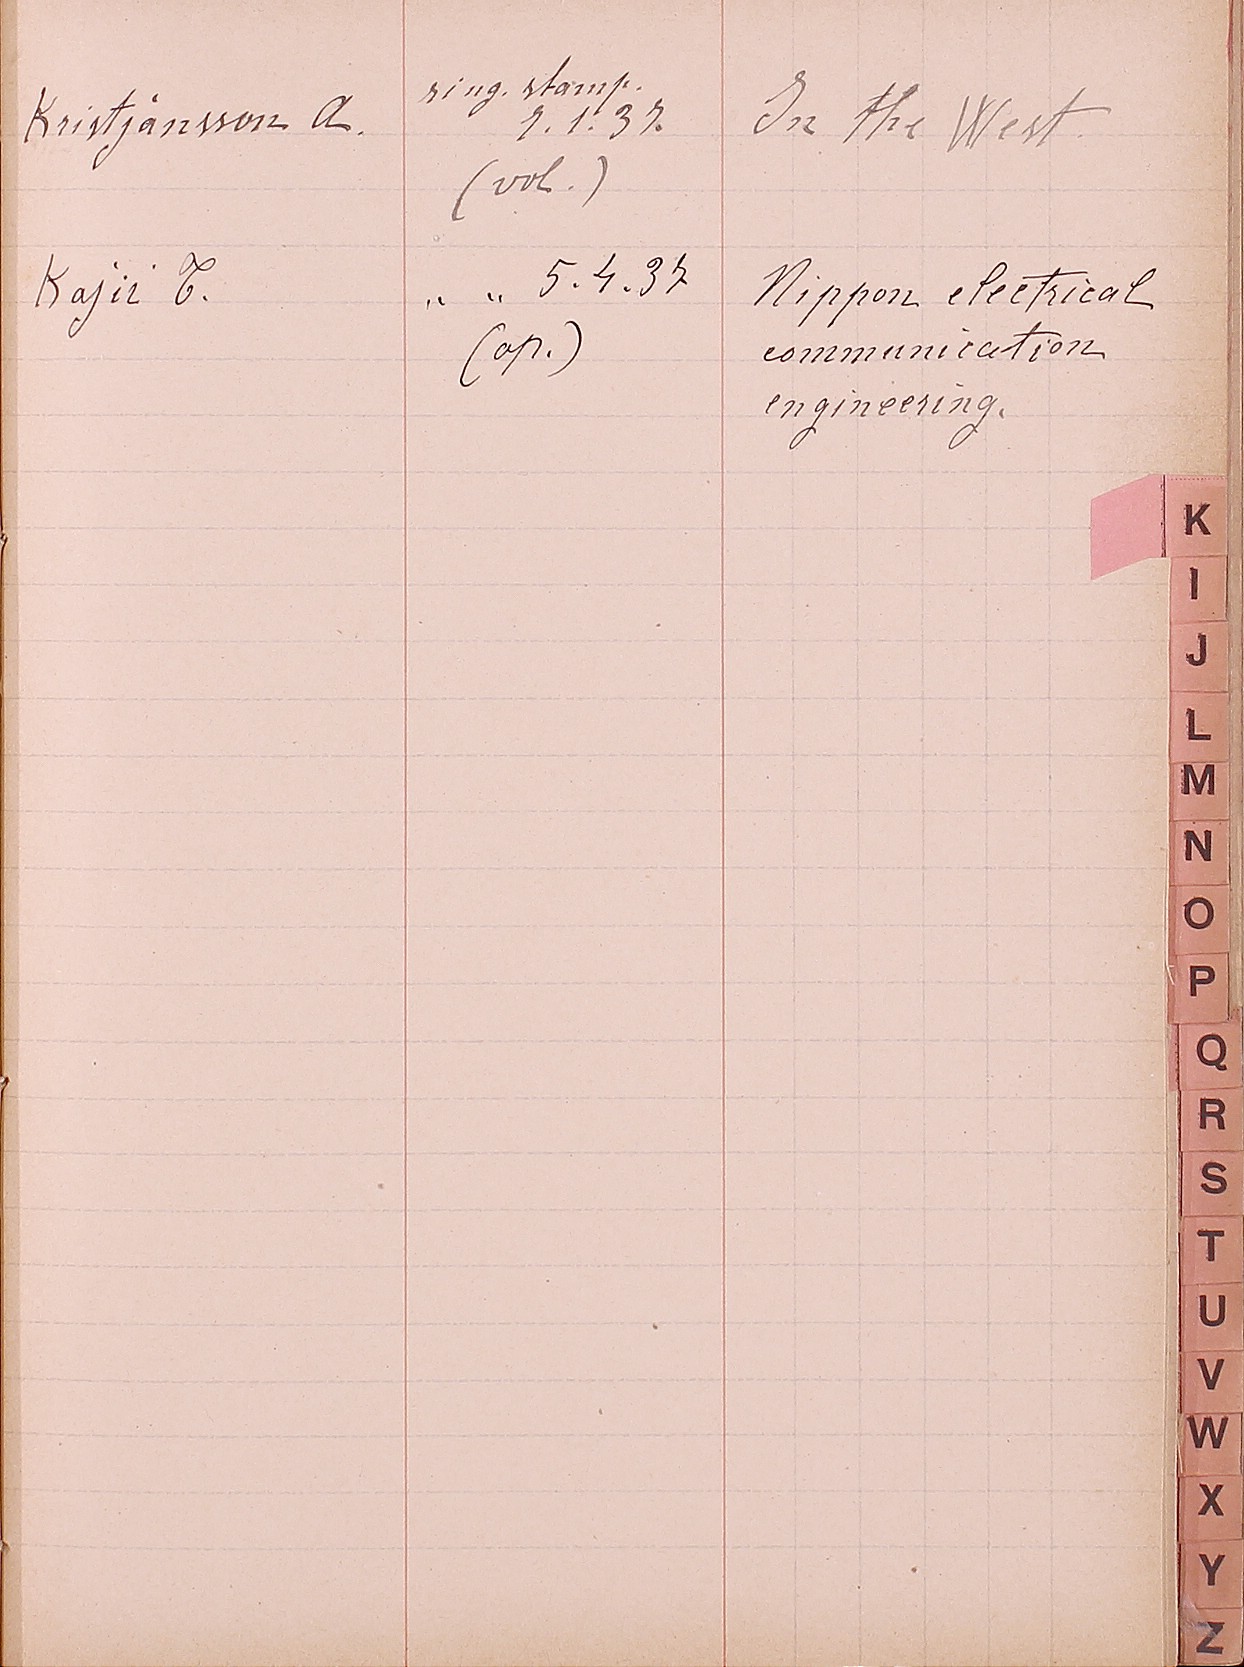 Kristjánsson A.
ring. stamp.
7.1.37.
(vol.)
In the West.
Kajii T.
" " 5.4.37
(op.)
Nippon electrical
communication
engineering.
K
I
J
L
M
N
O
P
Q
R
S
T
U
V
W
X
Y
Z